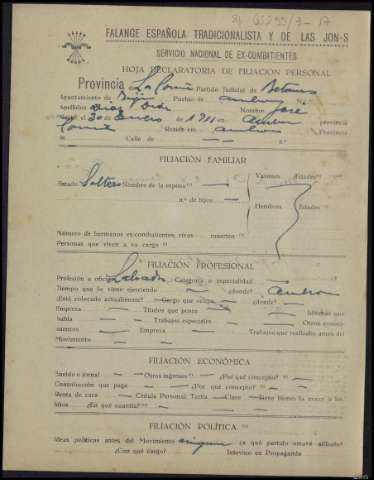 FALANGE ESPAÑOLA TRADICIONALISTA Y DE LAS JON-S
SERVICIO NACIONAL DE EX-COMBATIENTES
HOJA DECLARATORIA DE FILIACION PERSONAL
Provincia de La Coruña Partido Judicial de Betanzos
Ayuntamiento de Pueblo de
Apellidos Nombre José
el 30 Enero de 1911 en Provincia
Coruña Reside en Provincia
Calle de
FILIACIÓN FAMILIAR
Estado Soltero Nombre de la esposa
n.º de hijos
Varones Edades
Hembras Edades
Número de hermanos ex-combatientes, vivos muertos
Personas que viven a su cargo
FILIACIÓN PROFESIONAL
Profesión u oficio Labrador Categoría o especialidad
Tiempo que la viene ejerciendo ¿donde?
¿Está colocado actualmente? Cargo que ocupa ¿donde?
Empresa Títulos que posee Idiomas que
habla Trabajos especiales Otros conoci-
mientos Empresa Trabajos que realizó antes del
Movimiento
FILIACIÓN ECONÓMICA
Sueldo o jornal Otros ingresos ¿Por qué concepto?
Contribución que paga ¿Por qué concepto?
Renta de casa Cédula Personal Tarifa Clase Tiene bienes la mujer o los
hijos ¿En qué cuantía?
FILIACIÓN POLÍTICA
Ideas políticas antes del Movimiento ninguna ¿a qué partido estuvo afiliado?
¿Con qué cargo? Intervino en Propaganda